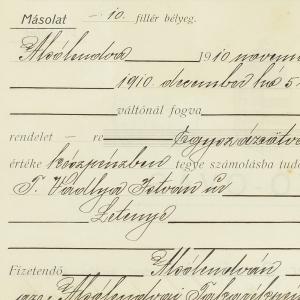 Másolat – 10. fillér bélyeg.
Alsólendva 1910 novem
1910 december hó 5-
váltónál fogva
rendelet – re Egyszázötv
értéke készpénzben tegye számolásba tud
T. Vardlya István úr
Letenye
Fizetendő Alsólendván
Alsólendvai Takarékpénz